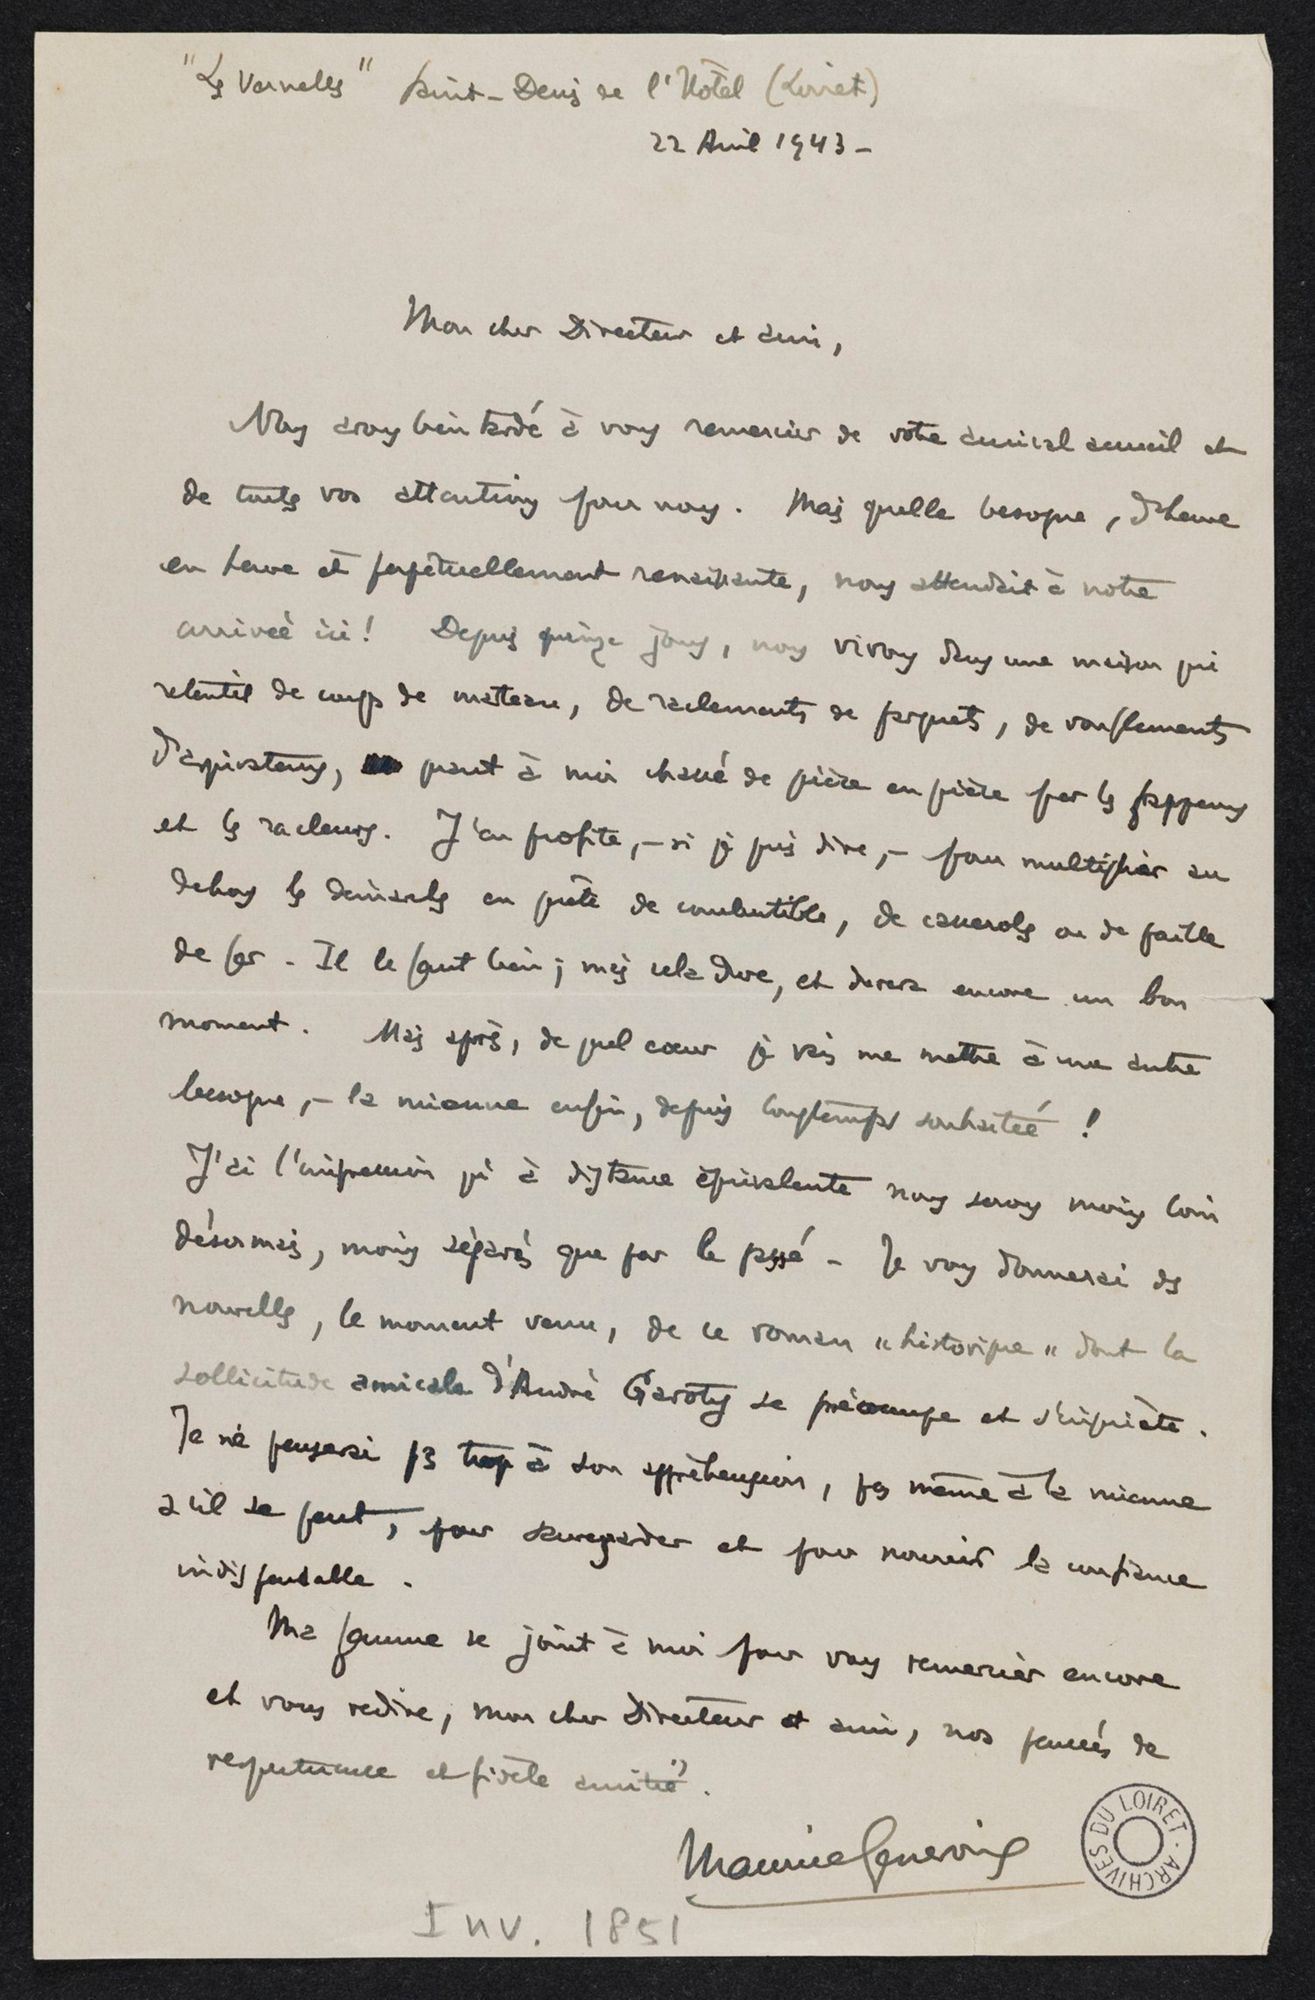 "Les Vernelles" Saint-Denis de l'Hôtel (Loiret)
22 Avril 1943 -
Mon cher Directeur et ami,
Nous avons bien tardé à vous remercier de votre amical accueil et
de toutes vos attentions pour nous. Mais quelle besogne, d'heure
en heure et perpétuellement renaissante, nous attendait à notre
arrivée ici ! Depuis quinze jours, nous vivons dans une maison qui
retentit de coups de marteau, de raclements de parquets, de ronflements
d'aspirateurs, quant à moi chassé de pièce en pièce par les frappeurs
et les racleurs. J'en profite, - si je puis dire, - pour multiplier au
dehors les démarches en quête de combustible, de casseroles ou de paille
de fer - Il le faut bien ; mais cela dure, et durera encore un bon
moment. Mais après, de quel cœur je vais me mettre à une autre
besogne, - la mienne enfin, depuis longtemps souhaitée !
J'ai l'impression qu'à distance équivalente nous serons moins loin
désormais, moins séparés que par le passé - Je vous donnerai des
nouvelles, le moment venu, de ce roman "historique" dont la
sollicitude amicale d'André se préoccupe et s'inquiète.
Je ne penserai pas trop à son appréhension, pas même à la mienne
s'il se peut, pour sauvegarder et pour nourrir la confiance
indispensable.
Ma femme se joint à moi pour vous remercier encore
et vous redire, mon cher Directeur et ami, nos pensées de
respectueuse et fidèle amitié.
Maurice Genevoix
ARCHIVES DU LOIRET
Inv. 1851